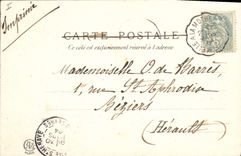 Imprimé
CARTE POSTALE
Ce côté est exclusivement réservé à l'adresse
Mademoiselle O. de Barrès
1, rue St Aphrodise
Béziers
(Hérault)